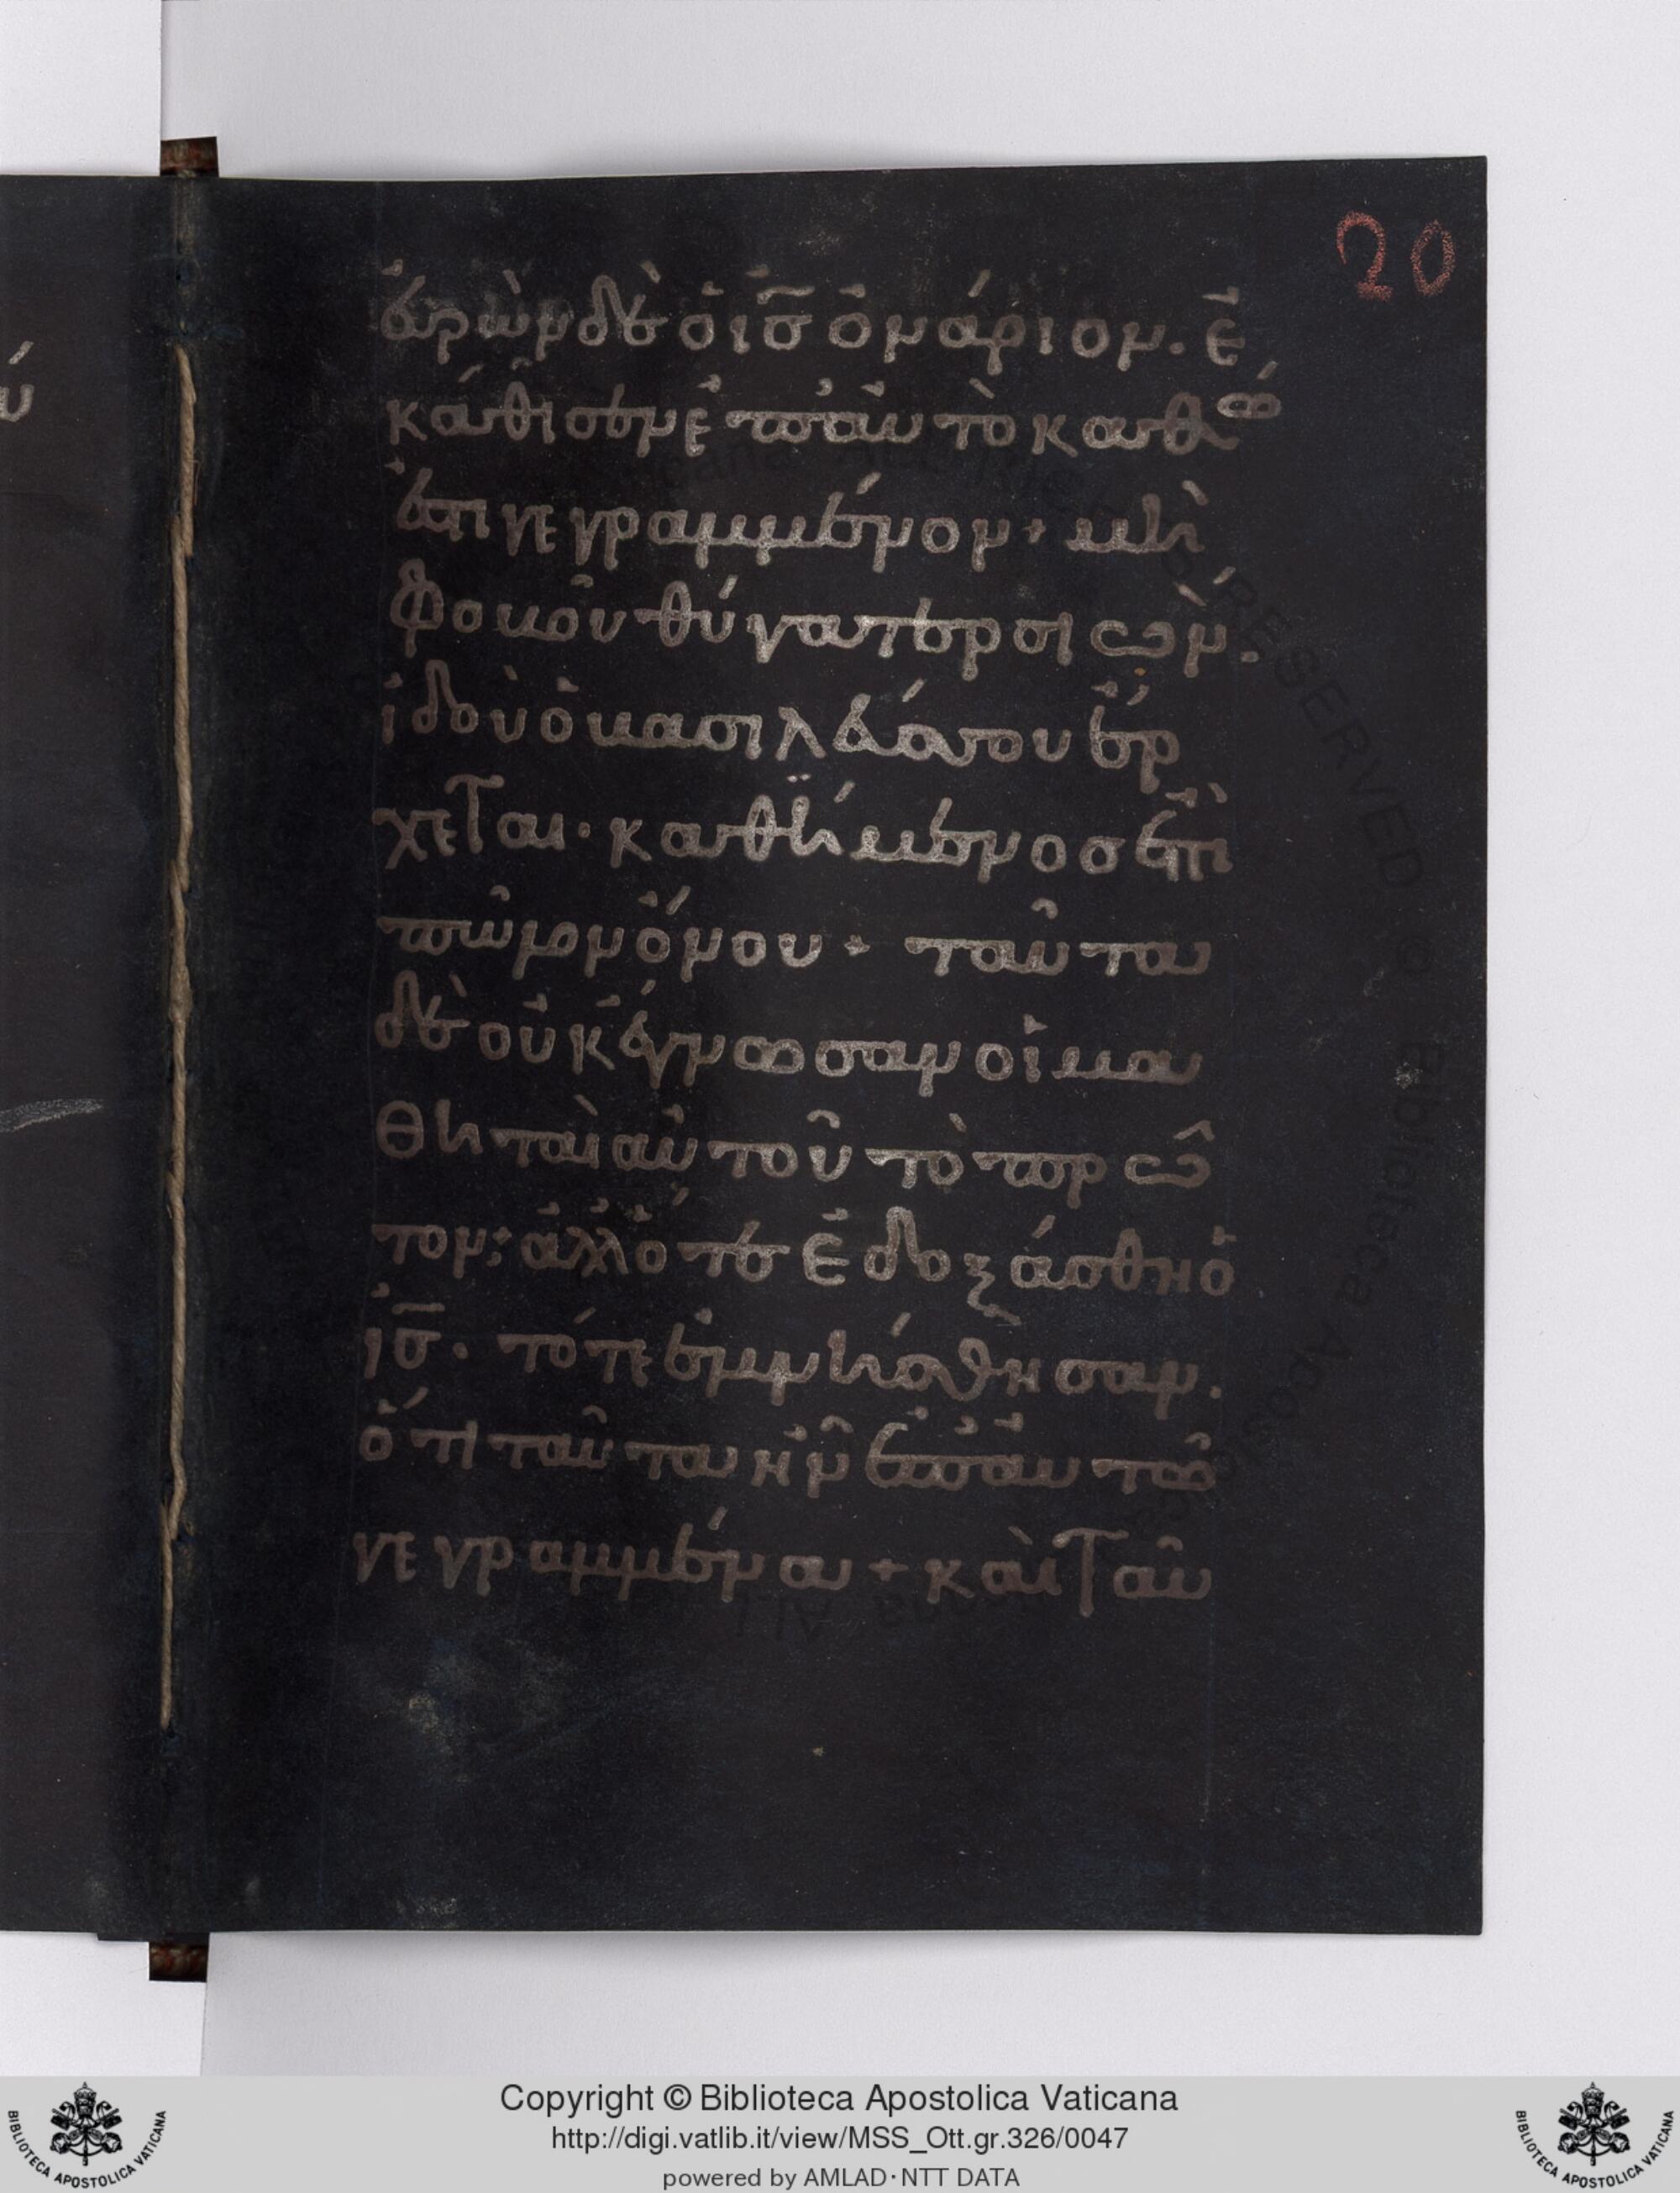 20
εὑρὼν δὲ ὁ ι̅ς̅ ὀνάριον. ἐ
κάθισεν ἐπ' αὐτὸ καθὼ
ἐπιγεγραμμένον + μὴ
φοβοῦ θύγατερ σιών.
ἰδοὺ ὁ βασιλεύς σου ἔρ
χεται· καθήμενος ἐπὶ
πῶλον ὄνου + ταῦτα
δὲ οὐκ ἔγνωσαν οἱ μα
θηταὶ αὐτοῦ τὸ πρῶ
τον· ἀλλ' ὅτε ἐδοξάσθη ὁ
ι̅ς̅. τότε ἐμνήσθησαν.
ὅτι ταῦτα ἦν ἐπ' αὐτῶ
γεγραμμένα + καὶ ταῦ
ύ
Copyright © Biblioteca Apostolica Vaticana
http://digi.vatlib.it/view/MSS_Ott.gr.326/0047
powered by AMLAD·NTT DATA
BIBLIOTECA APOSTOLICA VATICANA
BIBLIOTECA APOSTOLICA VATICANA